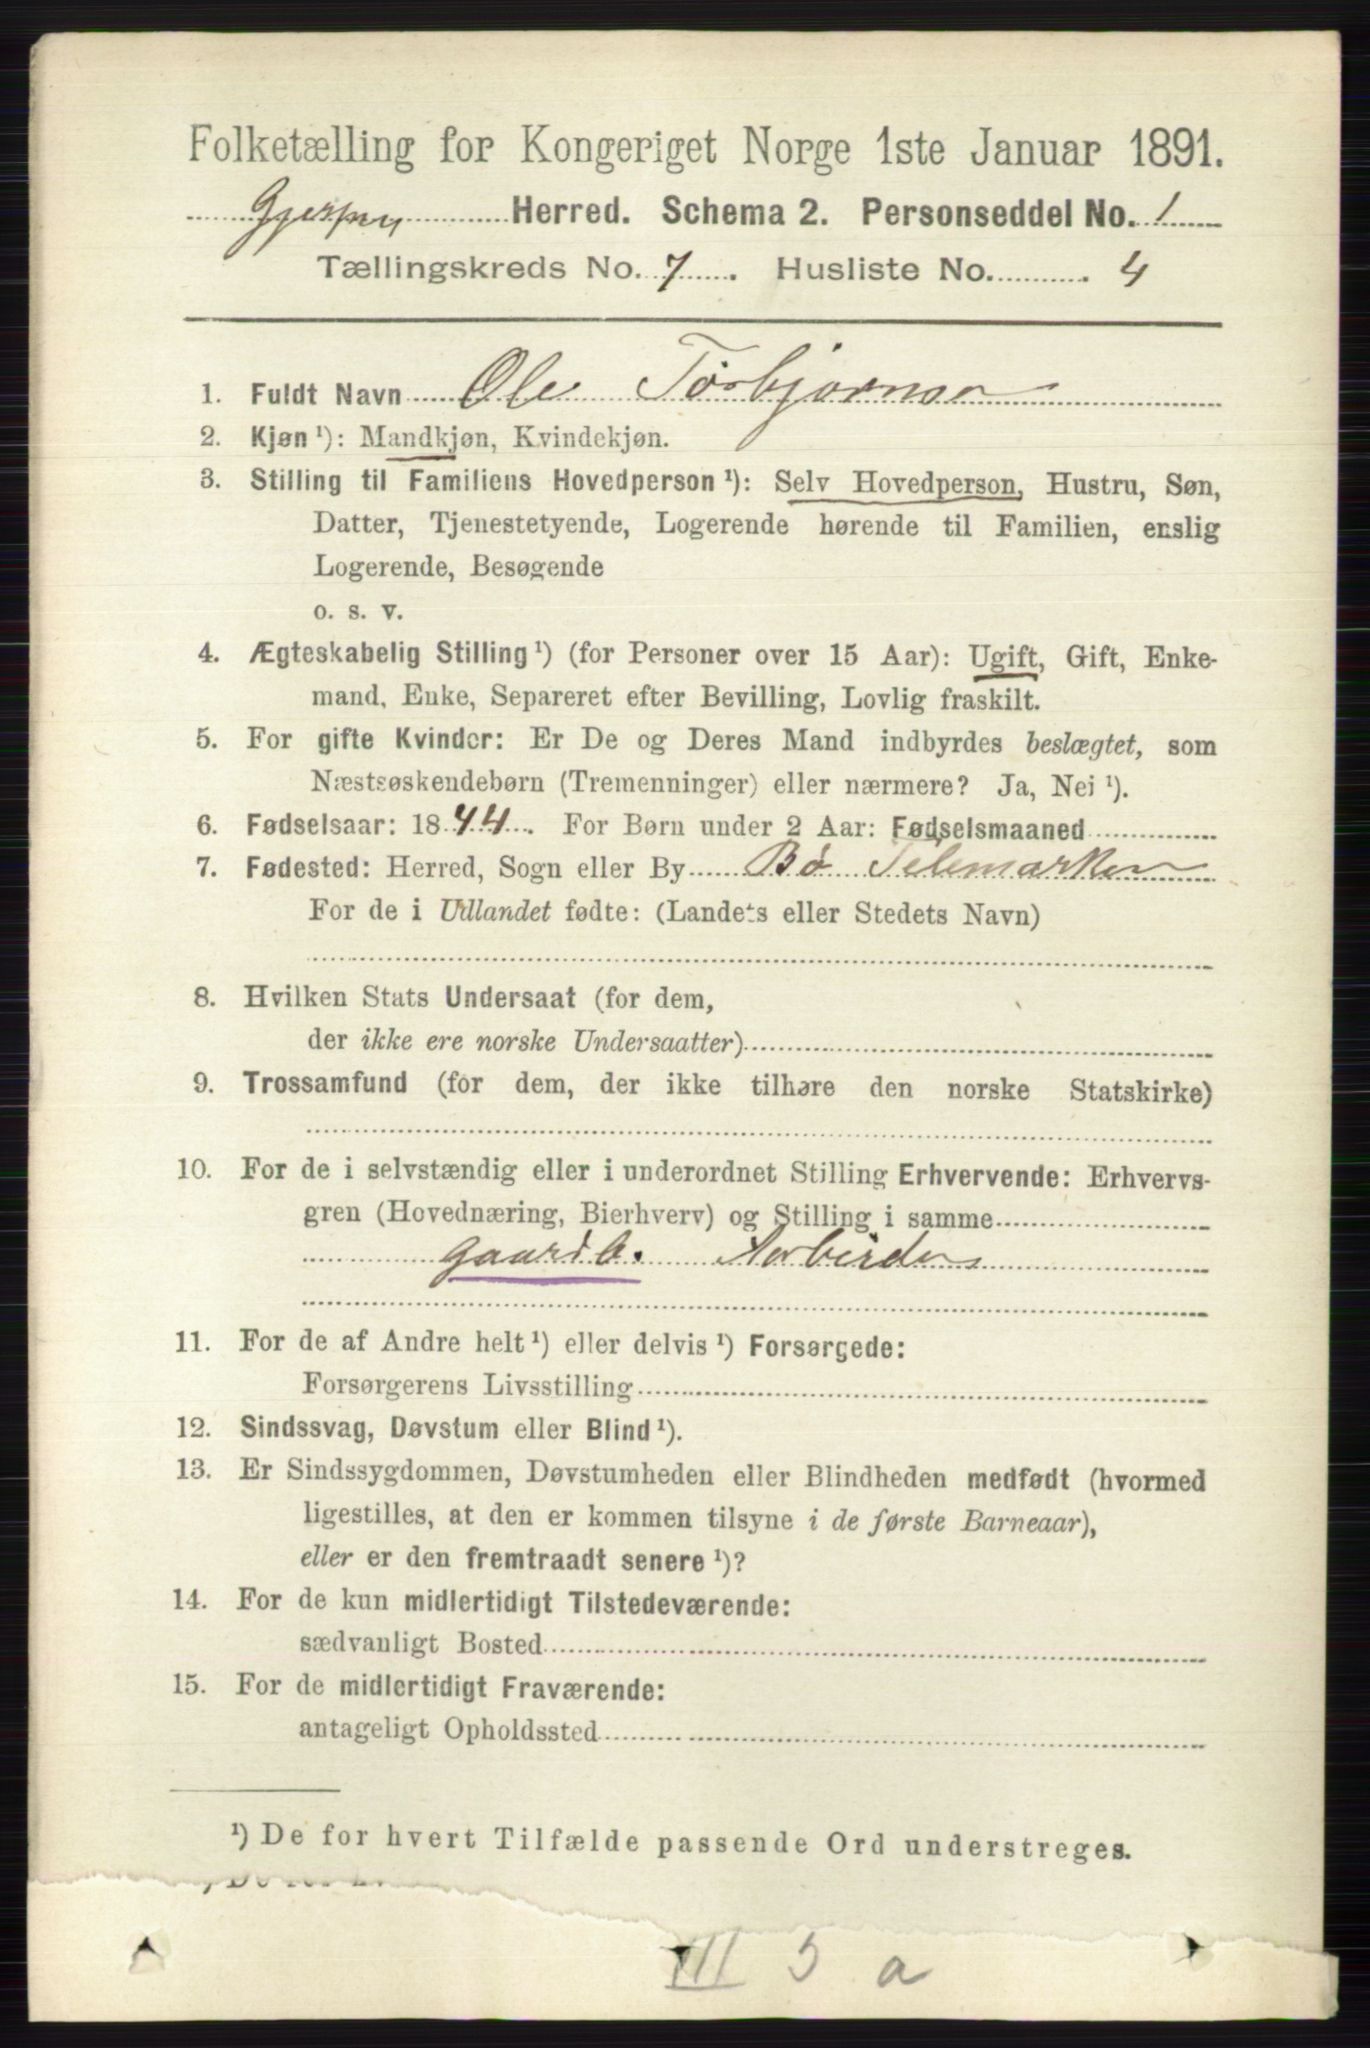 Folketælling for Kongeriget Norge 1ste Januar 1891.
Gjerpen Herred. Schema 2. Personseddel No. 1
Tællingskreds No. 7. Husliste No. 4
1. Fuldt Navn Ole Torbjornsen
2. Kjøn ¹): Mandkjøn, Kvindekjøn.
3. Stilling til Familiens Hovedperson ¹): Selv Hovedperson, Hustru, Søn,
Datter, Tjenestetyende, Logerende hørende til Familien, enslig
Logerende, Besøgende
o. s. v.
4. Ægteskabelig Stilling ¹) (for Personer over 15 Aar): Ugift, Gift, Enke-
mand, Enke, Separeret efter Bevilling, Lovlig fraskilt.
5. For gifte Kvinder: Er De og Deres Mand indbyrdes beslægtet, som
Næstsøskendebørn (Tremenninger) eller nærmere? Ja, Nei ¹).
6. Fødselsaar: 1844. For Børn under 2 Aar: Fødselsmaaned
7. Fødested: Herred, Sogn eller By Bø Telemarken
For de i Udlandet fødte: (Landets eller Stedets Navn)
8. Hvilken Stats Undersaat (for dem,
der ikke ere norske Undersaatter)
9. Trossamfund (for dem, der ikke tilhøre den norske Statskirke)
10. For de i selvstændig eller i underordnet Stilling Erhvervende: Erhvervs-
gren (Hovednæring, Bierhverv) og Stilling i samme
Gaardb. Arbeider
11. For de af Andre helt ¹) eller delvis ¹) Forsørgede:
Forsørgerens Livsstilling
12. Sindssvag, Døvstum eller Blind ¹).
13. Er Sindssygdommen, Døvstumheden eller Blindheden medfødt (hvormed
ligestilles, at den er kommen tilsyne i de første Barneaar),
eller er den fremtraadt senere ¹)?
14. For de kun midlertidigt Tilstedeværende:
sædvanligt Bosted
15. For de midlertidigt Fraværende:
antageligt Opholdssted
¹) De for hvert Tilfælde passende Ord understreges.
III 5 a